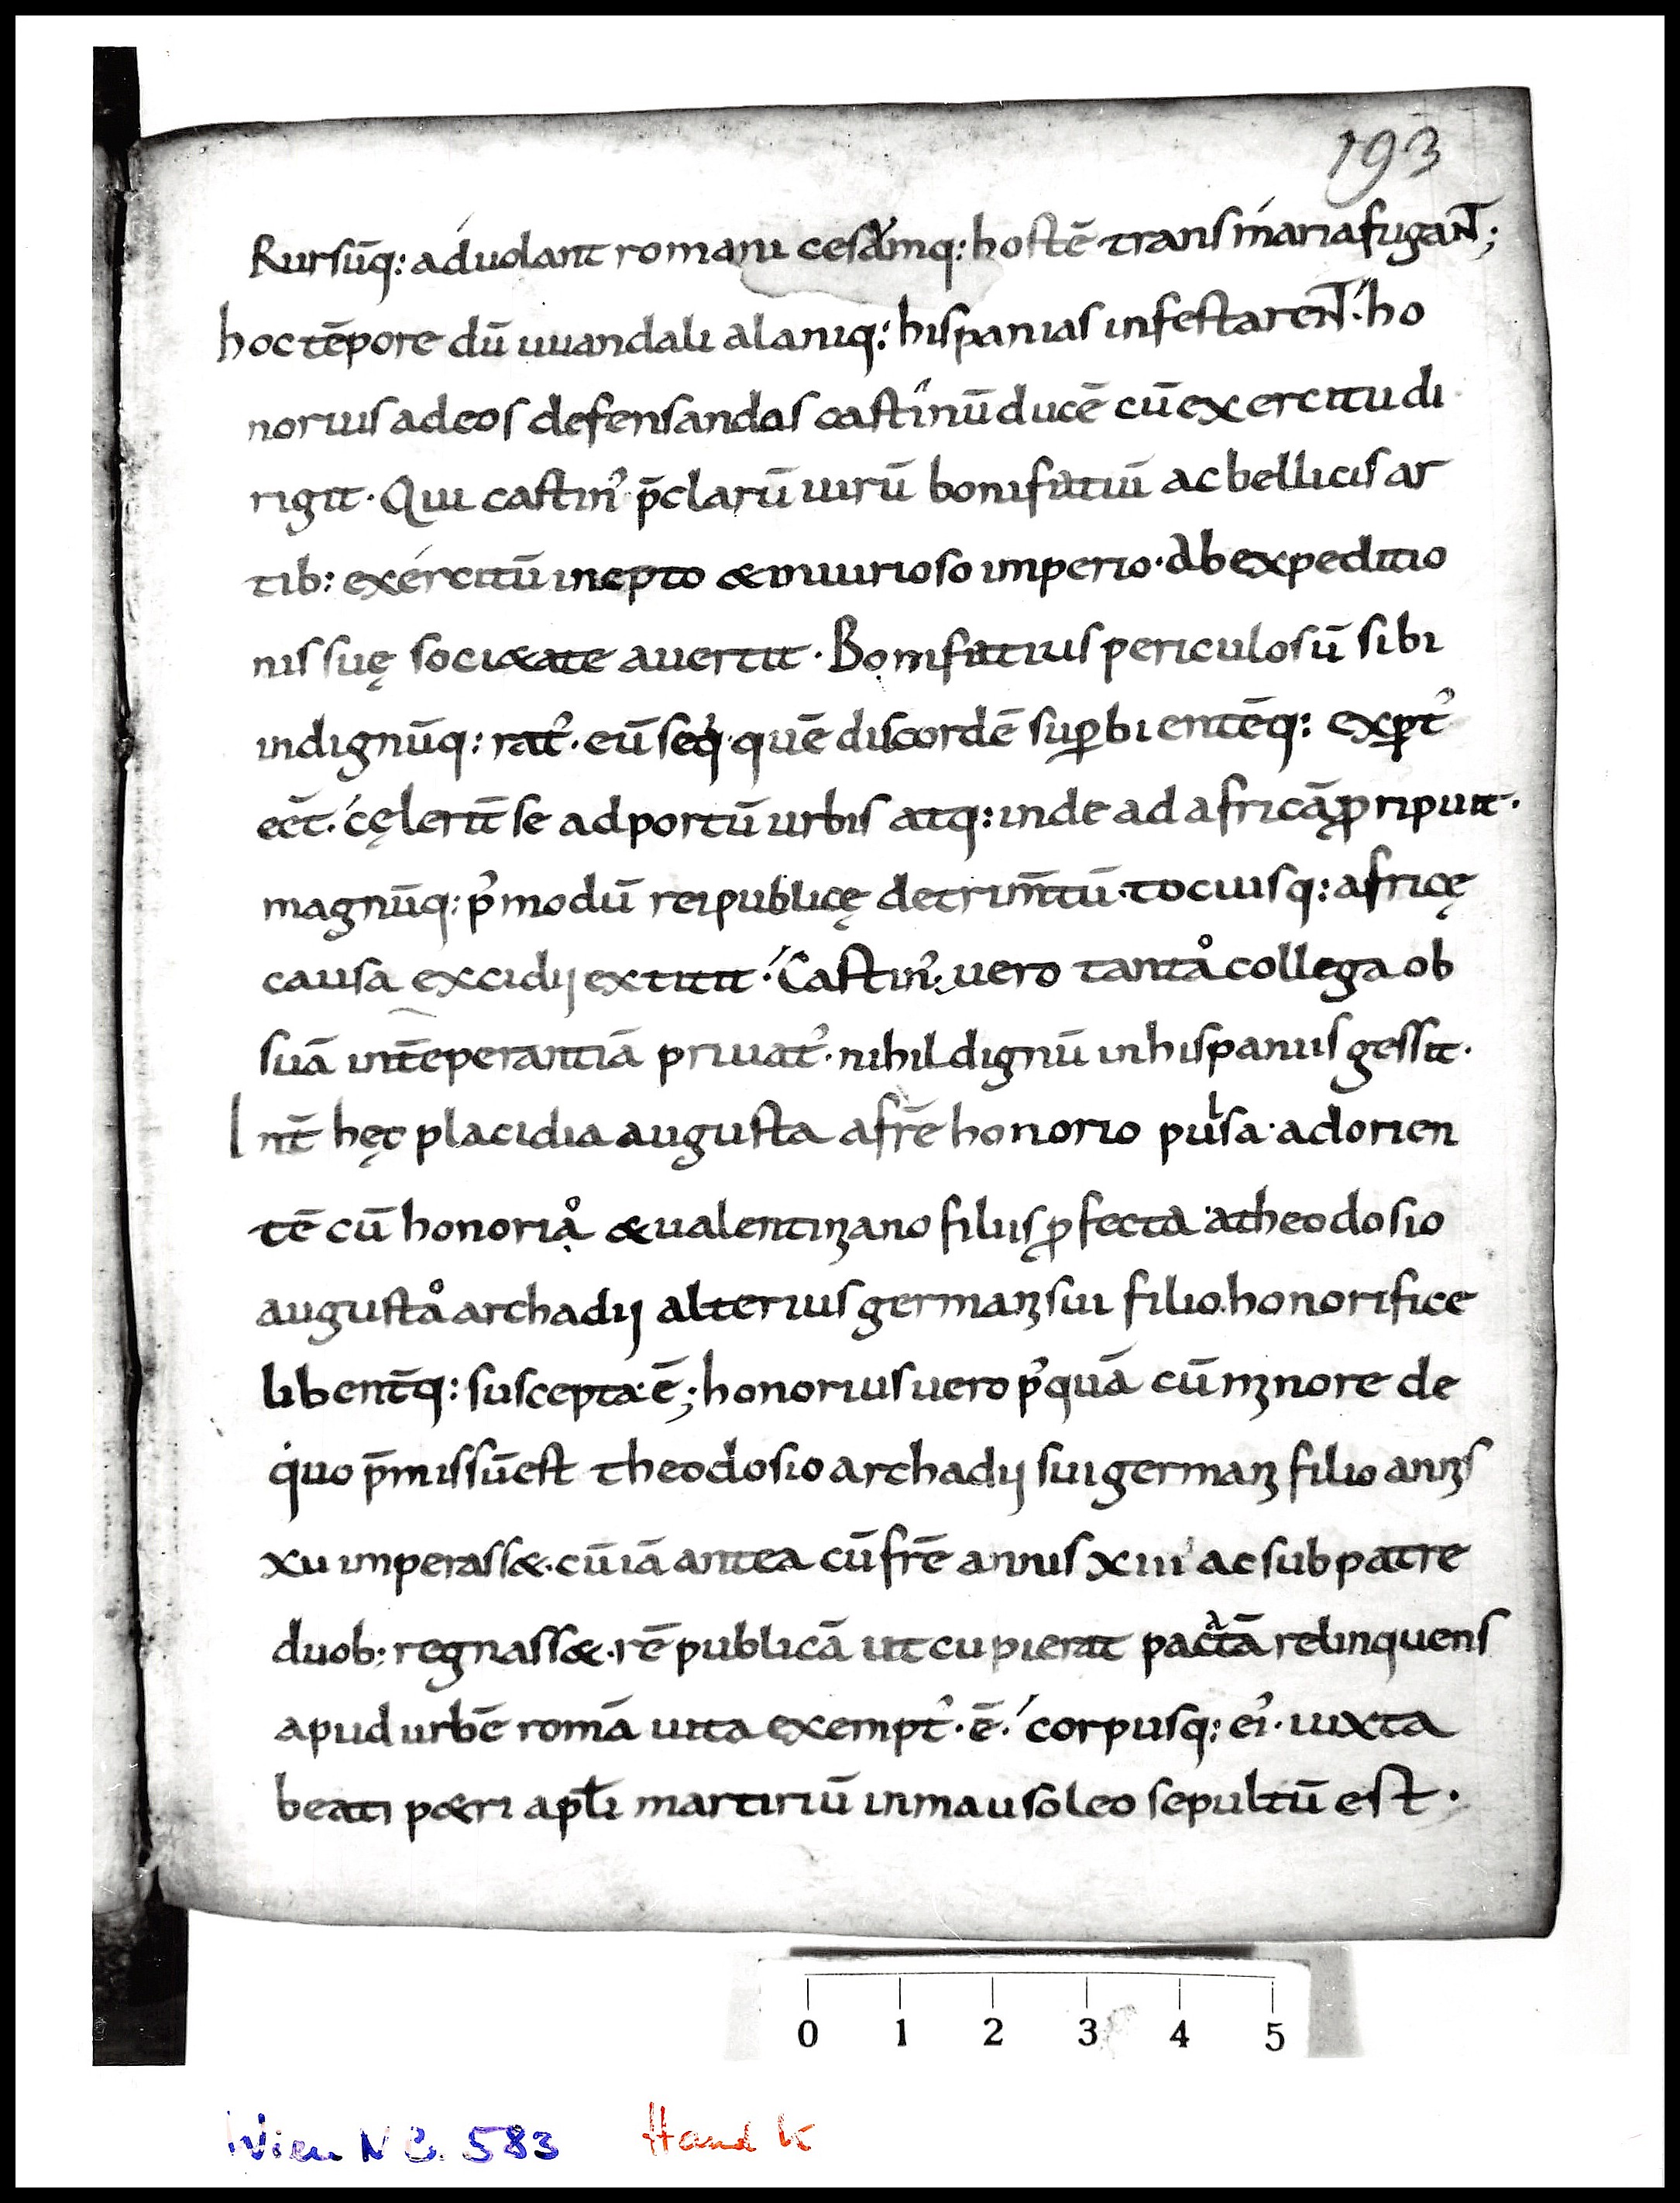 193
Rursūq: aduolant romani cesāmq: hostē trans maria fugant;
hoc tēpore dū uuandali alaniq: hispanias infestarent. ho
norius ad eos defensandos castinū ducē cū exercitu di
rigit. Qui castin᾽ p̄clarū uirū bonifatiū ac bellicis ar
tib: exercitū inepto & iniurioso imperio. ab expeditio
nis suę soci&ate auertit. Bonifatius periculosū sibi
indignūq: rat᾽. eū seq̇ quē discordē suꝑbientēq: exꝑt᾽
eēt. cęlerit̄ se ad portū urbis atq: inde ad africā ꝓripuit.
magnūq: p᾽modū reipublicę detrim̄tū. tociusq: africę
causa excidij extitit. Castin᾽. uero tantå collega ob
suā intēperantiā priuat᾽. nihil dignū in hispaniis gessit.
Int̄ hęc placidia augusta a fr̄e honorio pulsa. ad orien
tē cū honoriå & ualentiniano filiis ꝓfecta. a theodosio
augustå archadij alterius germani sui filio. honorifice
libent̄q: suscepta. ē; honorius uero p᾽quā cū minore de
quo p̄missū est theodosio archadij sui germani filio annis
xu imperass&. cū iā antea cū fr̄e annis xiii ac sub patre
duob: regnass&. rē publicā ut cupierat pacatā relinquens
apud urbē romā uita exempt᾽. ē. corpusq: ei᾽. iuxta
beati p&ri apl̄i martiriū in mausoleo sepultū est.
0 1 2 3 4 5
Wien N B. 583 Hand K